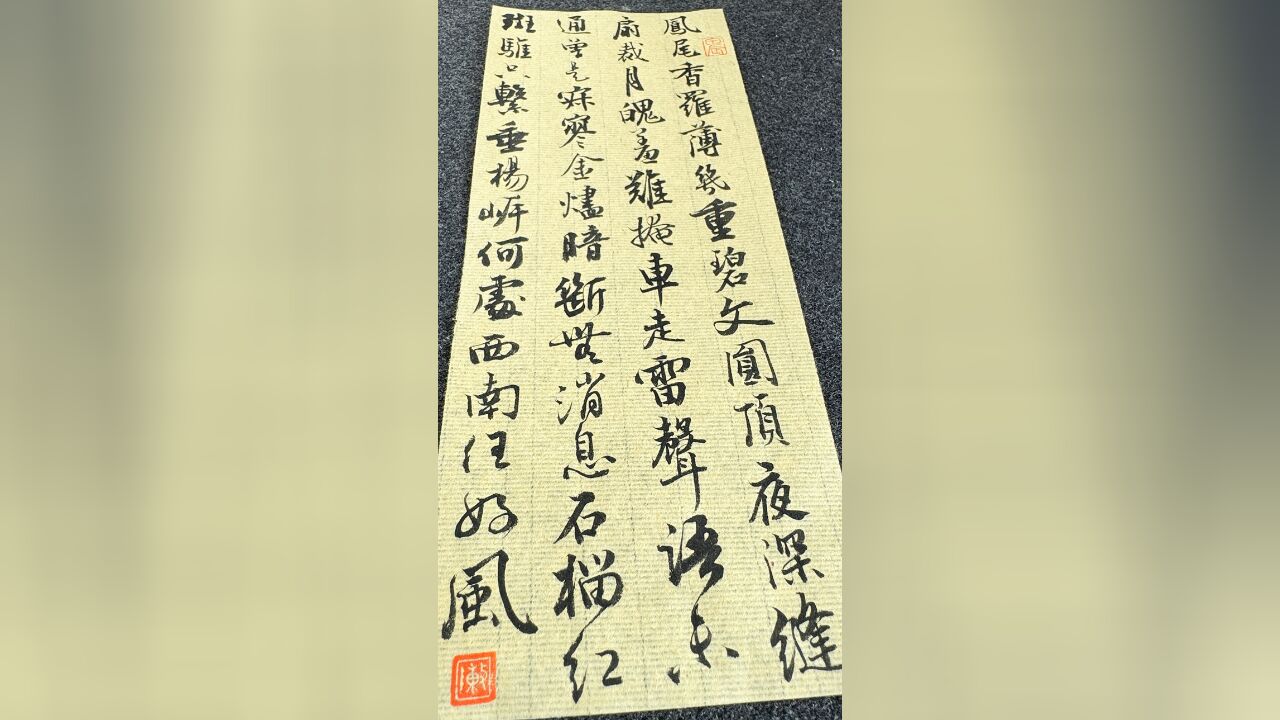 鳳尾香羅薄幾重碧文圓頂夜深縫
扇裁月魄羞難掩車走雷聲語未
通曾是寂寥金燼暗斷無消息石榴紅
斑騅只繫垂楊岸何處西南任好風